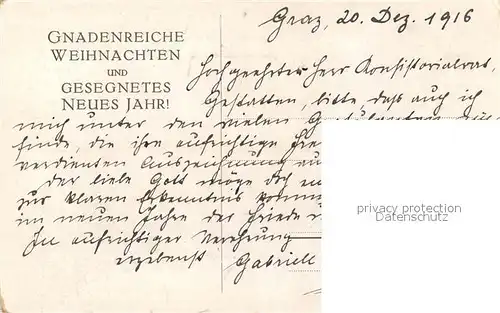 Graz, 20. Dez. 1916
GNADENREICHE
WEIHNACHTEN
UND
GESEGNETES
NEUES JAHR!
Hochgeehrter Herr Konsistorialrat,
Gestatten, bitte, daß auch ich
mich unter den vielen Gratulanten
finde, die ihre aufrichtige
verdienten Auszeichnung
der liebe Gott möge doch
zur klaren Erkenntnis
im neuen Jahre der Friede
In aufrichtiger Verehrung
ergebenst Gabriell
privacy protection
Datenschutz